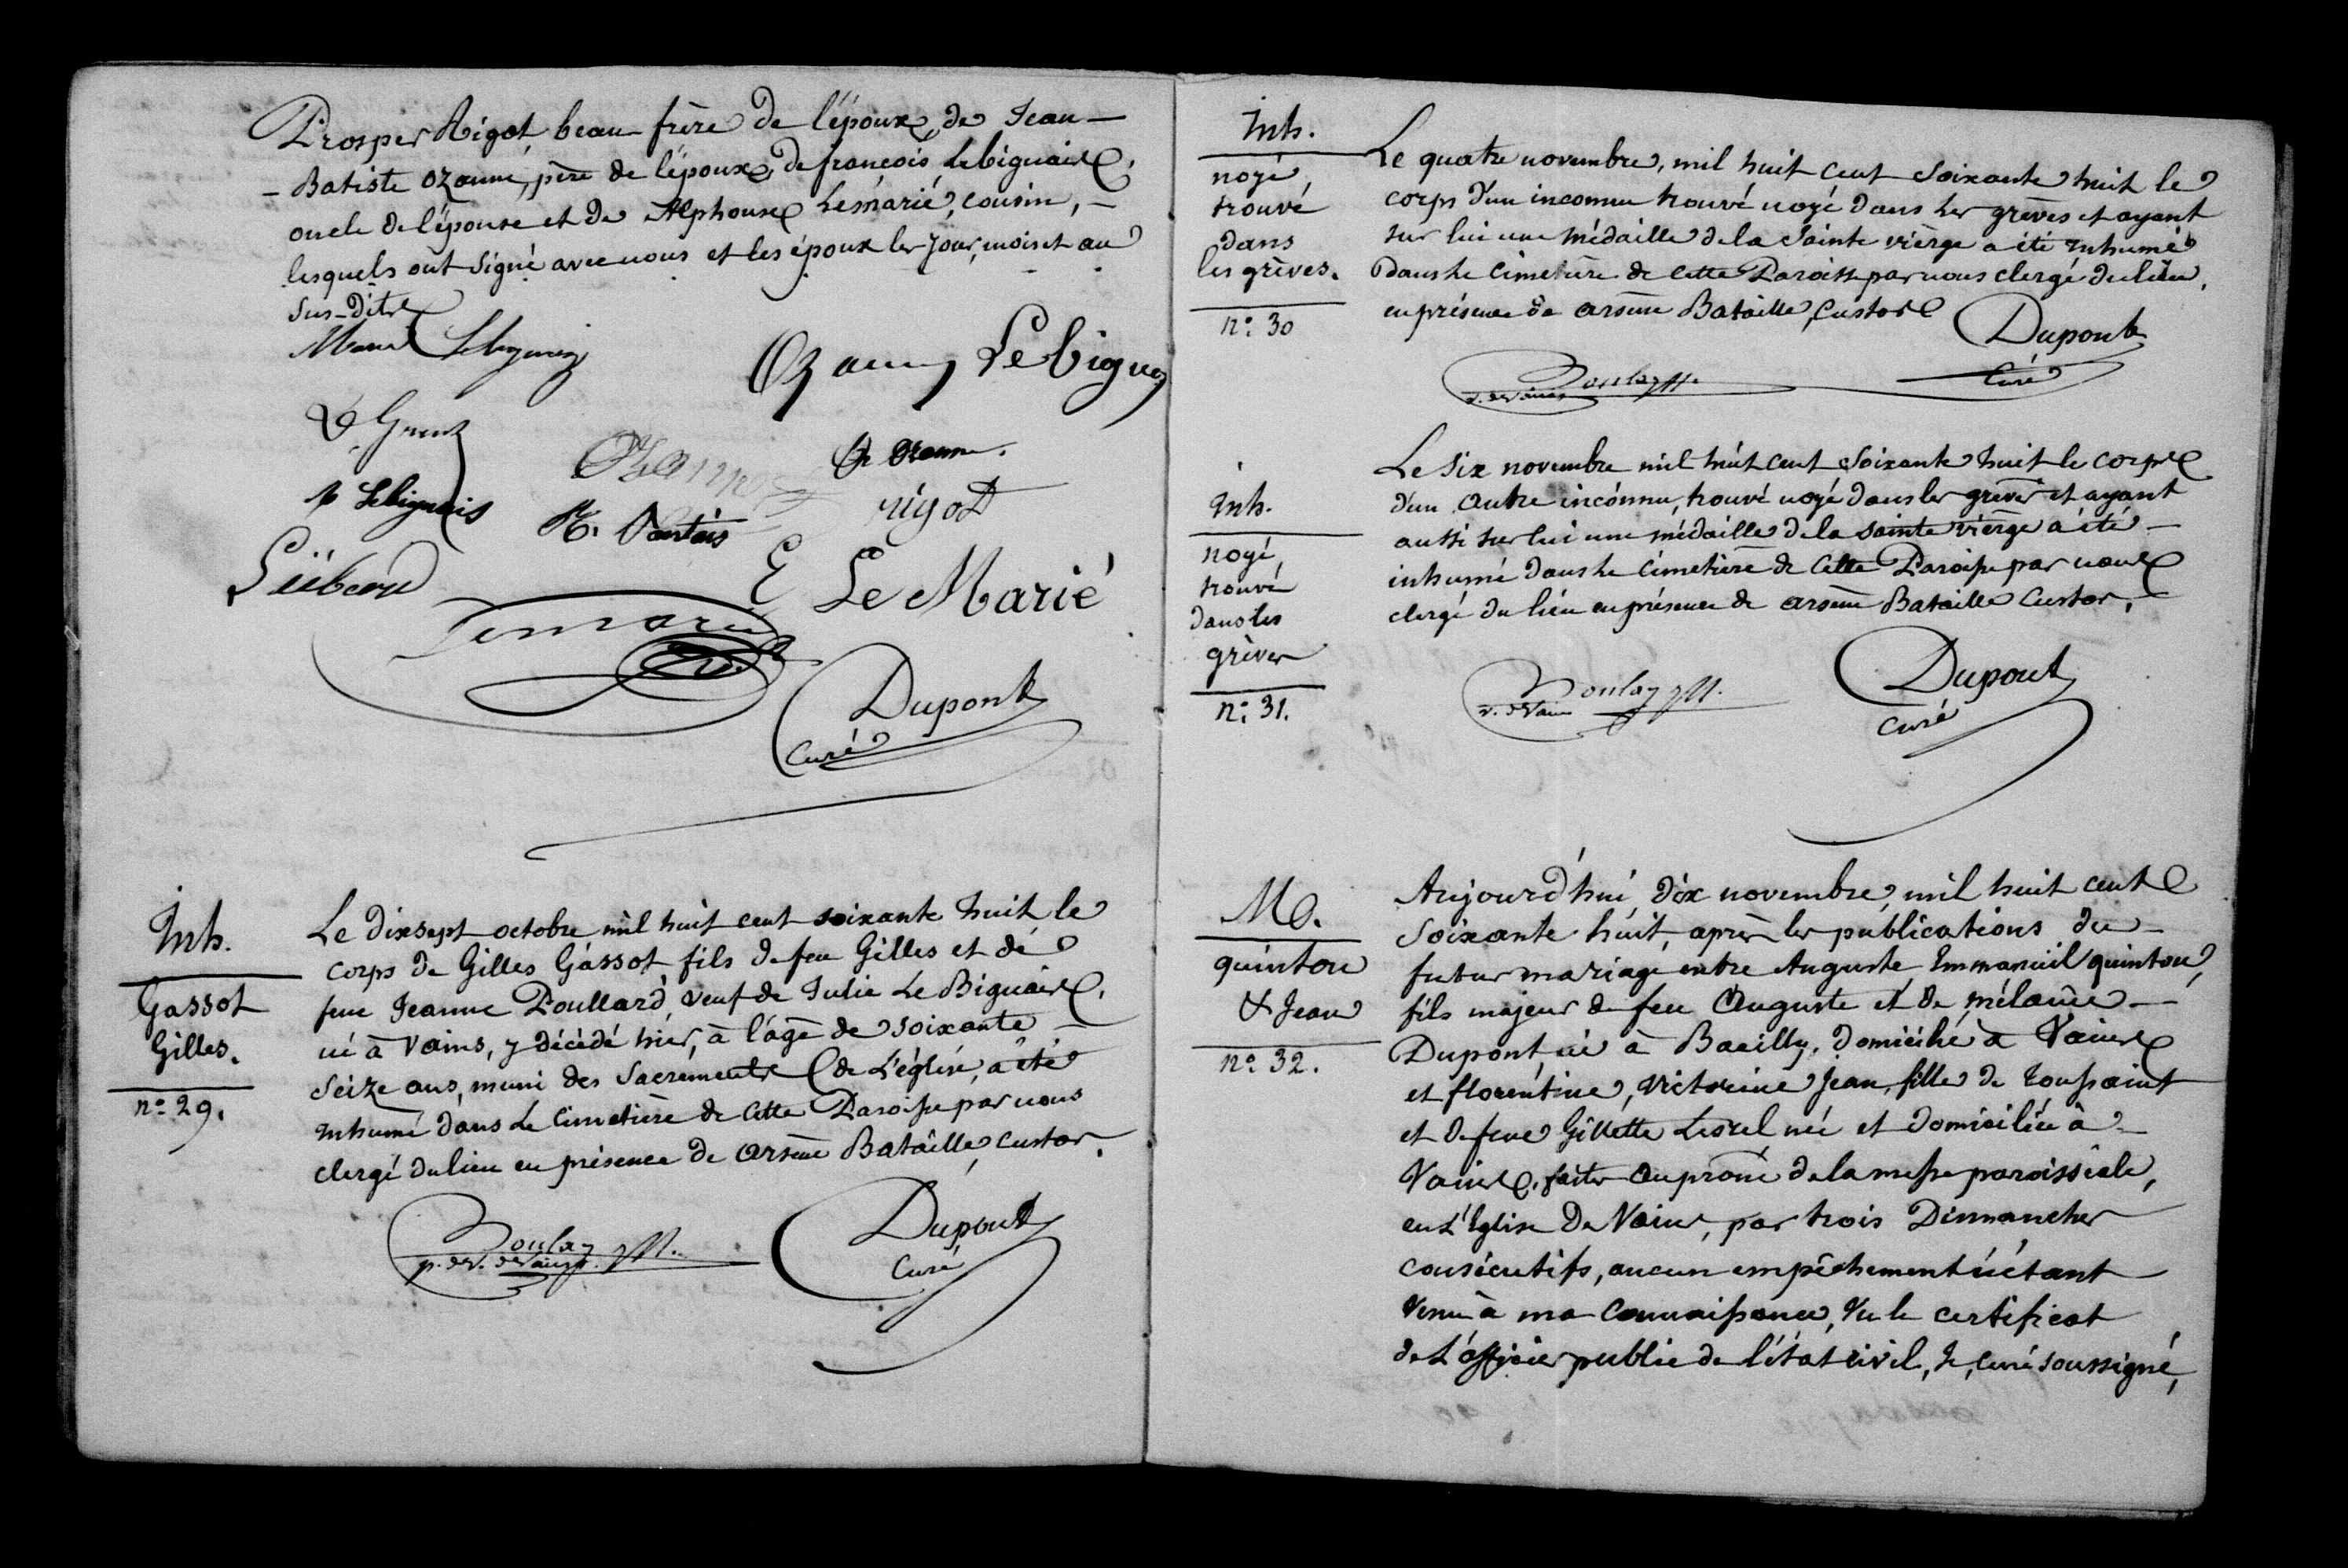 Prosper Rigot, beau frère de l'époux, de Jean-
- Batiste Ozanne, père de l'époux, de françois Lebiguais,
oncle de l'épouse et de Alphonse Lemarié, cousin, -
lesquels ont signé avec nous et les époux les jour, mois et an
sus-dits
Ozanne Lebiguais
Ozanne
rigot
Liébard
E Le Marié
Lemarié
Dupont
Curé
Inh.
Gassot
Gilles.
n° 29.
Le dixsept octobre mil huit cent soixante huit, le
corps de Gilles Gassot fils de feu Gilles et de
feue Jeanne Poullard, veuf de Julie Le Biguais,
né à Vains, y décédé hier, à l'âge de soixante
seize ans, muni des Sacrements de l'église, a été
inhumé dans le cimetière de cette Paroisse par nous
clergé du lieu en présence de arsène Bataille, custos.
Boulay
p. de V. de Vains.
Dupont
Curé
Inh.
noyé
trouvé
dans
les grèves.
n° 30
Le quatre novembre, mil huit cent soixante huit le
corps d'un inconnu trouvé noyé dans les grèves et ayant
sur lui une médaille de la Sainte vièrge a été inhumé
dans le cimetière de cette Paroisse par nous clergé du lieu,
en présence de arsène Bataille, custos
Dupont
Curé
Boulay
v. de Vains
Inh.
noyé
trouvé
dans les
grèves
n° 31.
Le six novembre mil huit cent soixante huit le corps
d'un autre inconnu, trouvé noyé dans les grèves et ayant
aussi sur lui une médaille de la sainte vièrge a été -
inhumé dans le cimetière de cette Paroisse par nous
clergé du lieu en présence de arsène Bataille custos, -
Boulay
v. de Vains
Dupont
Curé
M.
quinton
& Jean
n° 32.
Aujourd'hui, dix novembre, mil huit cent
soixante huit, après les publications du -
futur mariage entre Auguste Emmanuël quinton,
fils majeur de feu Auguste et de mélanie -
Dupont, né à Bacilly, domicilié à Vains
et florentine, victorine Jean, fille de toussaint
et de feue Gillette Lesrel née et domiciliée à -
Vains, faites au prône de la messe paroissiale,
en L'Eglise de Vains, par trois Dimmanches
consécutifs, aucun empêchement n'étant
venu à ma connaissance, Vu le certificat
de L'officier public de l'état civil, Je, curé soussigné,